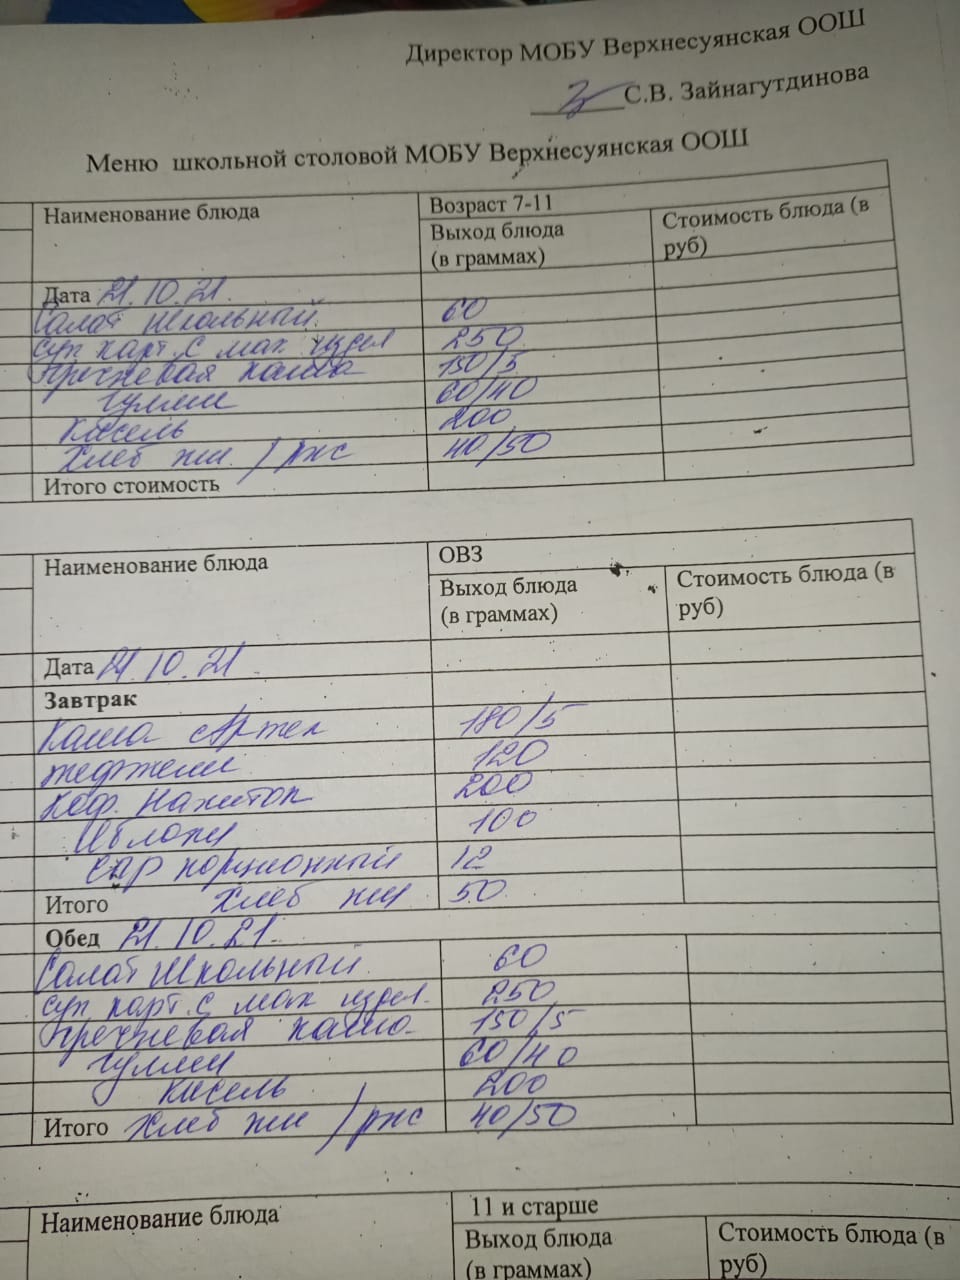 Директор МОБУ Верхнесуянская ООШ
С.В. Зайнагутдинова
Меню школьной столовой МОБУ Верхнесуянская ООШ
Наименование блюда
Возраст 7-11
Выход блюда
(в граммах)
Стоимость блюда (в
руб)
Дата 21.10.21.
Салат Школьный. 60
суп карт. с мак. издел 250
Гречневая каша 150/5
Гуляш 60/40
Кисель 200
Хлеб пш. / рж 40/50
Итого стоимость
Наименование блюда
ОВЗ
Выход блюда
(в граммах)
Стоимость блюда (в
руб)
Дата 21.10.21.
Завтрак
Каша 180/5
120
Коф. напиток 200
Яблоки 100
сыр порционный 12
Итого Хлеб пш 50
Обед 21.10.21.
Салат Школьный 60
суп карт. с мак издел. 250
Гречневая каша. 150/5
Гуляш 60/40
Кисель 200
Итого Хлеб пш / рж 40/50
Наименование блюда
11 и старше
Выход блюда
(в граммах)
Стоимость блюда (в
руб)